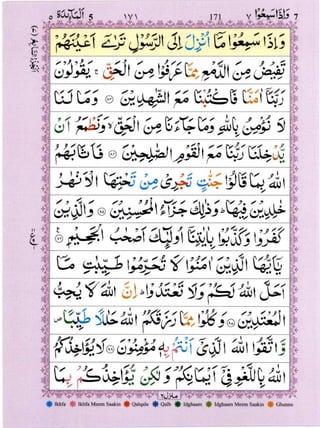 المآئدة ٥ 5 ١٧١ 171 ٧ وَاِذَا سَمِعُوْا 7
وَاِذَا سَمِعُوْا مَاۤ اُنْزِلَ اِلَى الرَّسُوْلِ تَرٰۤى اَعْيُنَهُمْ
تَفِيْضُ مِنَ الدَّمْعِ مِمَّا عَرَفُوْا مِنَ الْحَقِّ ۚ يَقُوْلُوْنَ
رَبَّنَاۤ اٰمَنَّا فَاكْتُبْنَا مَعَ الشّٰهِدِيْنَ ۝۸۳ وَمَا لَنَا
لَا نُؤْمِنُ بِاللّٰهِ وَمَا جَآءَنَا مِنَ الْحَقِّ ۙ وَنَطْمَعُ اَنْ
يُّدْخِلَنَا رَبُّنَا مَعَ الْقَوْمِ الصّٰلِحِيْنَ ۝۸۴ فَاَثَابَهُمُ
اللّٰهُ بِمَا قَالُوْا جَنّٰتٍ تَجْرِيْ مِنْ تَحْتِهَا الْاَنْهٰرُ
خٰلِدِيْنَ فِيْهَا ؕ وَذٰلِكَ جَزَآءُ الْمُحْسِنِيْنَ ۝۸۵ وَالَّذِيْنَ
كَفَرُوْا وَكَذَّبُوْا بِاٰيٰتِنَاۤ اُولٰٓئِكَ اَصْحٰبُ الْجَحِيْمِ ۝۸۶
يٰۤاَيُّهَا الَّذِيْنَ اٰمَنُوْا لَا تُحَرِّمُوْا طَيِّبٰتِ مَاۤ
اَحَلَّ اللّٰهُ لَكُمْ وَلَا تَعْتَدُوْا ؕ اِنَّ اللّٰهَ لَا يُحِبُّ
الْمُعْتَدِيْنَ ۝۸۷ وَكُلُوْا مِمَّا رَزَقَكُمُ اللّٰهُ حَلٰلًا طَيِّبًا ۪
وَّاتَّقُوا اللّٰهَ الَّذِيْۤ اَنْتُمْ بِهٖ مُؤْمِنُوْنَ ۝۸۸ لَا يُؤَاخِذُكُمُ
اللّٰهُ بِاللَّغْوِ فِيْۤ اَيْمَانِكُمْ وَلٰكِنْ يُّؤَاخِذُكُمْ بِمَا
منزل ٢
Ikhfa Ikhfa Meem Saakin Qalqala Qalb Idghaam Idghaam Meem Saakin Ghunna